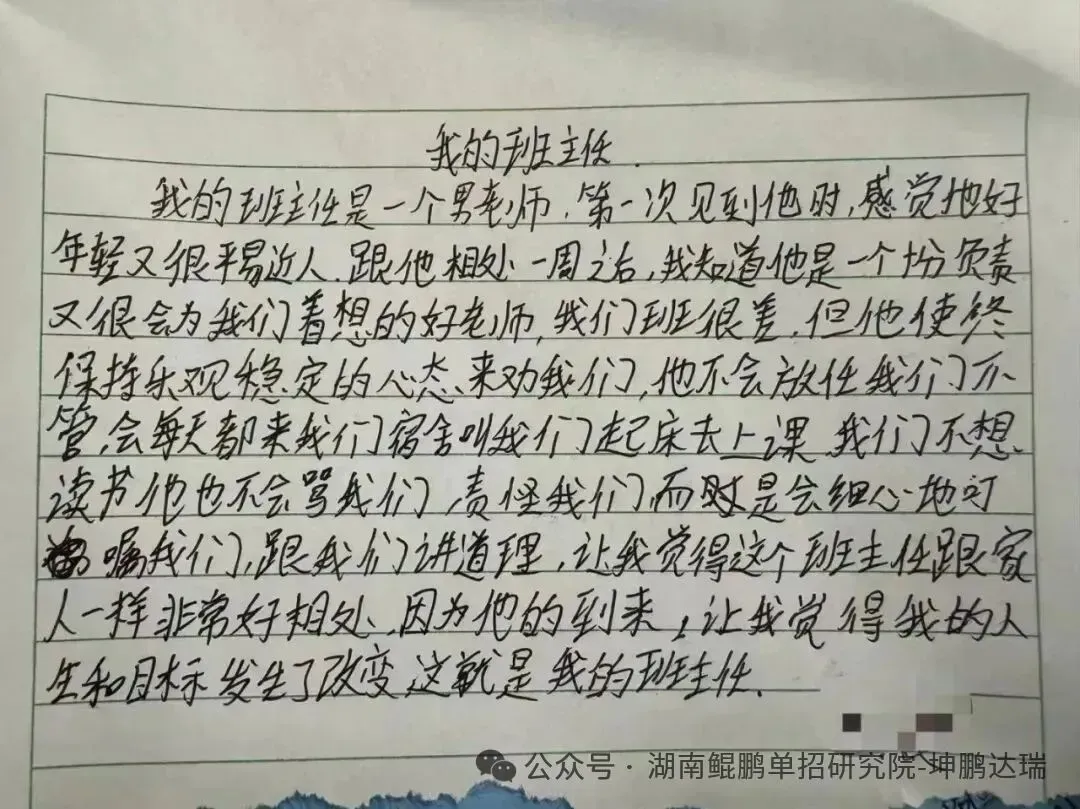 我的班主任.
我的班主任是一个男老师.第一次见到他时,感觉他好
年轻又很平易近人.跟他相处一周之后,我知道他是一个十分负责
又很会为我们着想的好老师,我们班很差.但他使终
保持乐观稳定的心态来劝我们,他不会放任我们不
管,会每天都来我们宿舍叫我们起床去上课.我们不想
读书他也不会骂我们,责怪我们而是会细心地叮
嘱我们,跟我们讲道理,让我觉得这个班主任跟家
人一样非常好相处,因为他的到来,让我觉得我的人
生和目标发生了改变这就是我的班主任.
公众号·湖南鲲鹏单招研究院-坤鹏达瑞